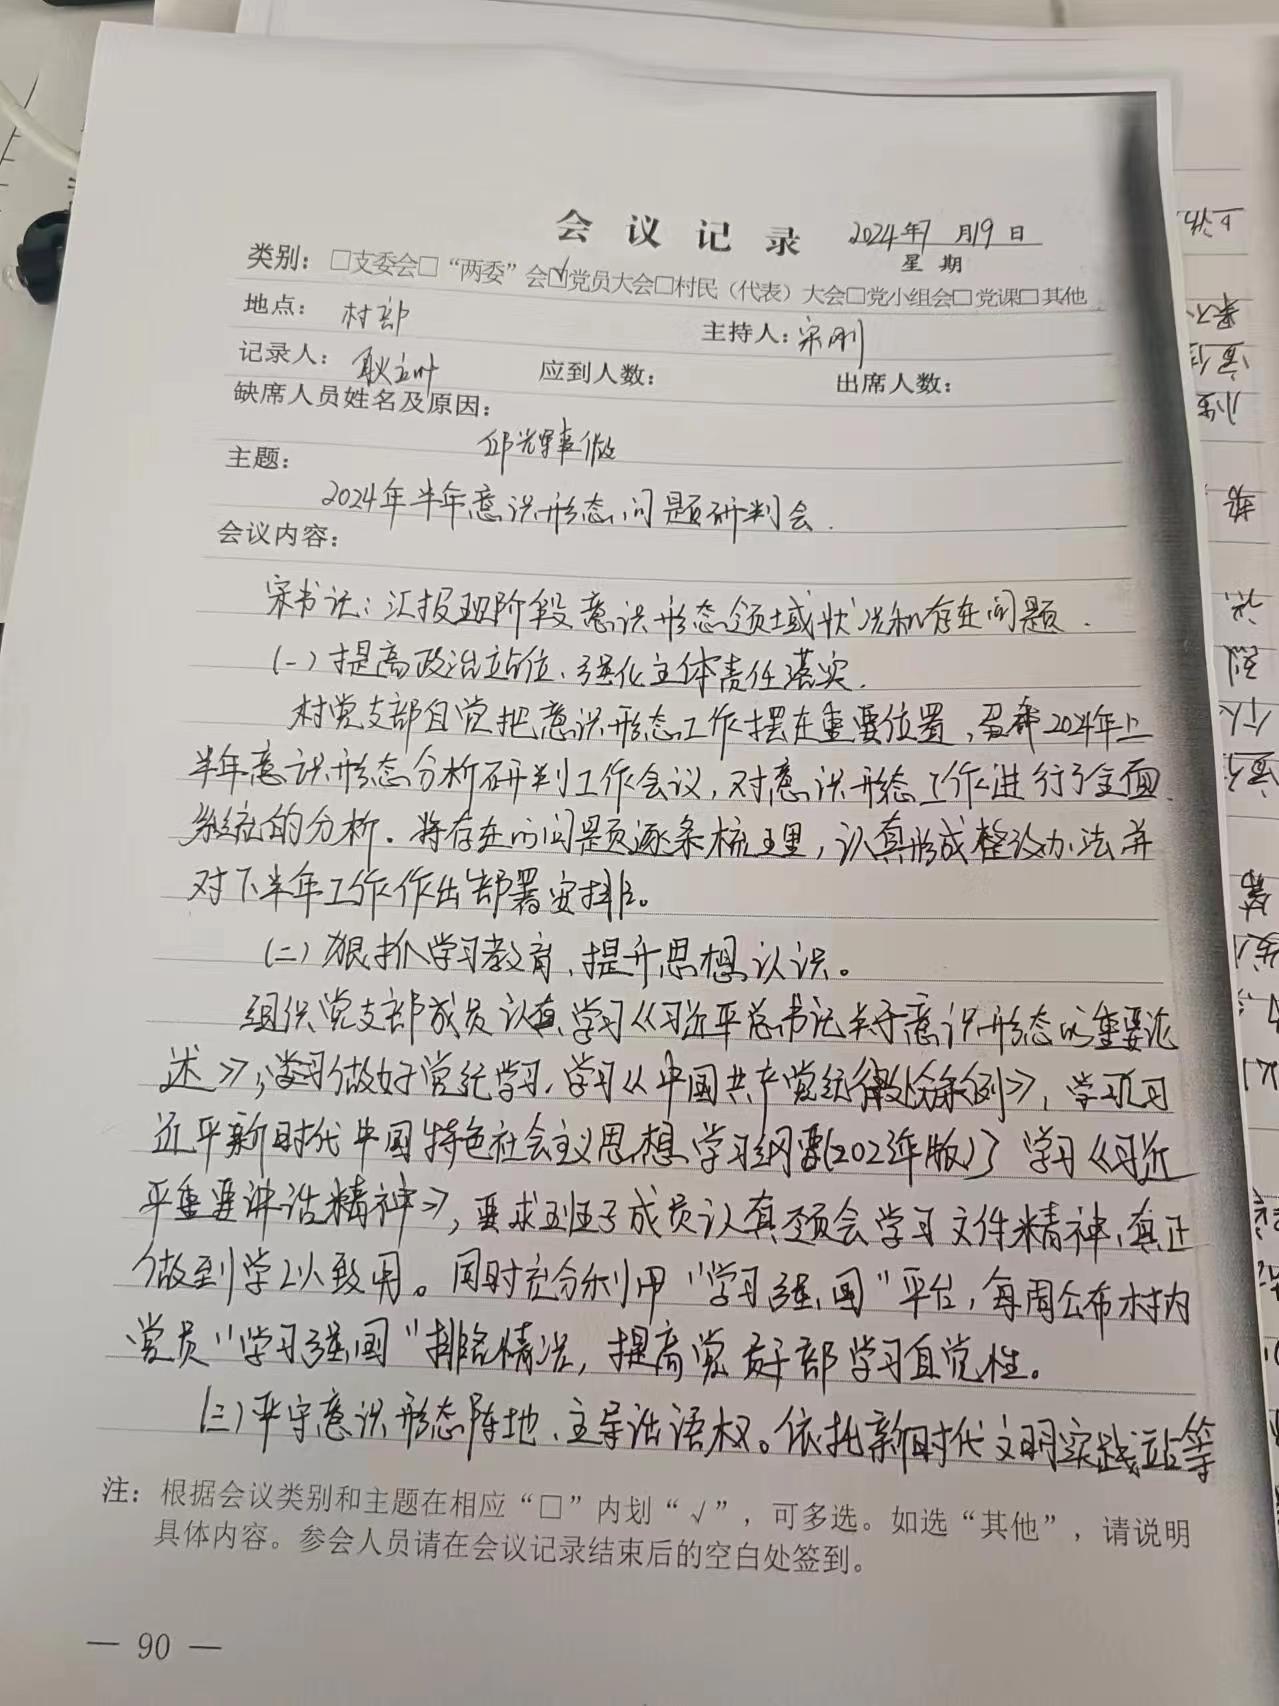 会议记录 2024年7月19日
星期
类别：□支委会□“两委”会☑党员大会□村民（代表）大会□党小组会□党课□其他
地点： 村部 主持人：宋刚
记录人： 耿立叶 应到人数： 出席人数：
缺席人员姓名及原因：
主题：
2024年半年意识形态问题研判会.
会议内容：
宋书记：汇报现阶段意识形态领域状况和存在问题.
(一)提高政治站位、强化主体责任落实.
村党支部自觉把意识形态工作摆在重要位置，召开2024年上
半年意识形态分析研判工作会议，对意识形态工作进行了全面
系统的分析.将存在的问题逐条梳理，认真形成整改办法并
对下半年工作作出部署安排。
(二)狠抓学习教育、提升思想认识。
组织党支部成员认真学习《习近平总书记关于意识形态的重要论
述》，学习做好党纪学习.学习《中国共产党纪律处分条例》，学习《习
近平新时代中国特色社会主义思想学习纲要(2023年版)》学习《习近
平重要讲话精神》，要求班子成员认真领会学习文件精神、真正
做到学以致用。同时充分利用“学习强国”平台，每周公布村内
党员“学习强国”排名情况，提高党员干部学习自觉性。
(三)严守意识形态阵地、主导话语权。依托新时代文明实践站等
注：根据会议类别和主题在相应“□”内划“√”，可多选。如选“其他”，请说明
具体内容。参会人员请在会议记录结束后的空白处签到。
— 90 —